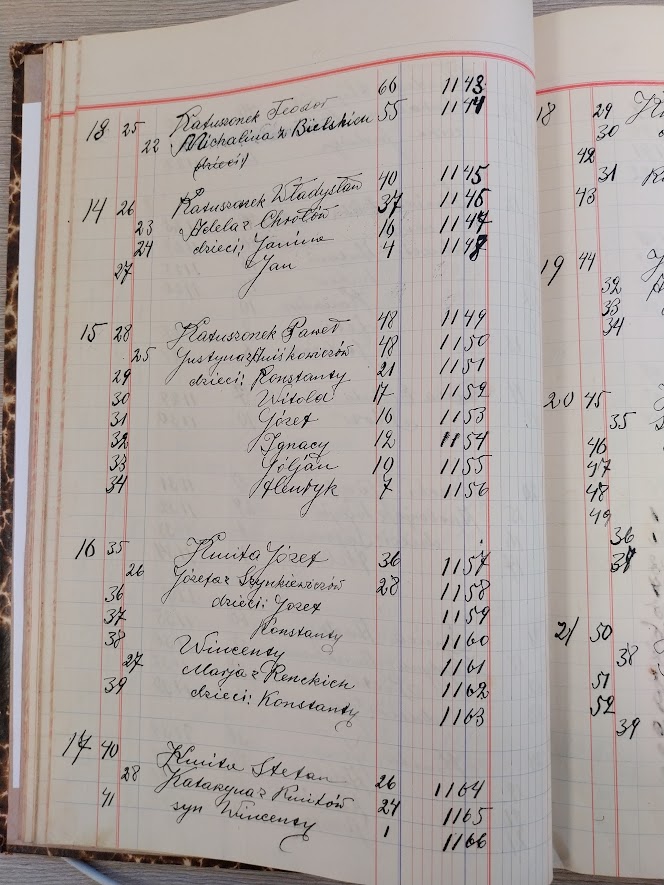 13 25 Katuszonek Teodor 66 1143
22 Michalina z Bielskich 55 1144
(dzieci)
14 26 Katuszonek Władysław 40 1145
23 Adela z Chrołów 37 1146
24 dzieci: Janina 16 1147
27 Jan 4 1148
15 28 Katuszonek Paweł 48 1149
25 Justyna z 48 1150
29 dzieci: Konstanty 21 1151
30 Witold 17 1152
31 Józef 16 1153
32 Ignacy 12 1154
33 1155
34 Henryk 7 1156
16 35 Kmita Józef 36 1157
26 Józefa z Szynkiewiczów 28 1158
36 dzieci: Józef 1159
37 Konstanty 1160
38 Wincenty 1161
27 Marja z Renckich 1162
39 dzieci: Konstanty 1163
17 40 Kmita Stefan 26 1164
28 Katarzyna z Kmitów 24 1165
41 syn Wincenty 1 1166
18 29
30
42
31
43
19 44
32
33
34
20 45
35
46
47
48
49
36
37
21 50
38
51
52
39